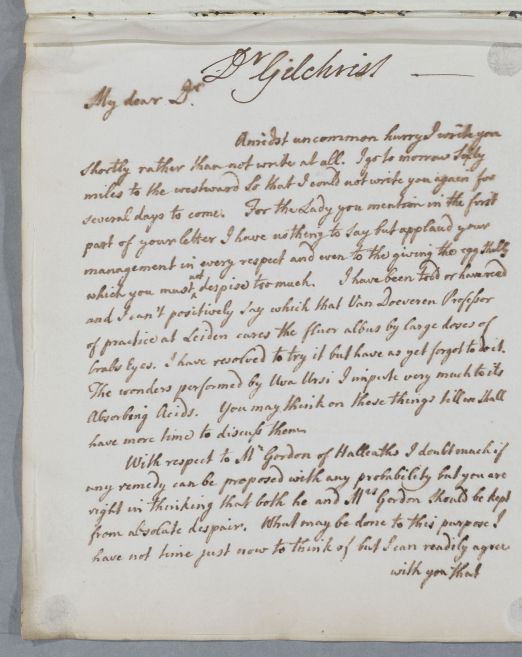 Dr Gilchrist
My dear Dr.
Amidst uncommon hurry I write you
shortly rather than not write at all. I go to morrow Sixty
miles to the westward so that I could not write you again for
several days to come. For the Lady you mention in the first
part of your letter I have nothing to say but applaud your
management in every respect and even to the giving the egg shells
which you must not despise too much. I have been told or have read
and I can't positively say which that Van Doeveren Professor
of practice at Leiden cures the fluor albus by large doses of
Crabs Eyes. I have resolved to try it but have as yet forgot to do it.
The wonders performed by Uva Ursi I impute very much to its
Absorbing Acids. You may think on these things till we shall
have more time to discuss them.
With respect to Mr Gordon of Halleaths I doubt much if
any remedy can be proposed with any probability but you are
right in thinking that both he and Mrs Gordon should be kept
from absolute despair. What may be done to this purpose I
have not time just now to think of but I can readily agree
with you that